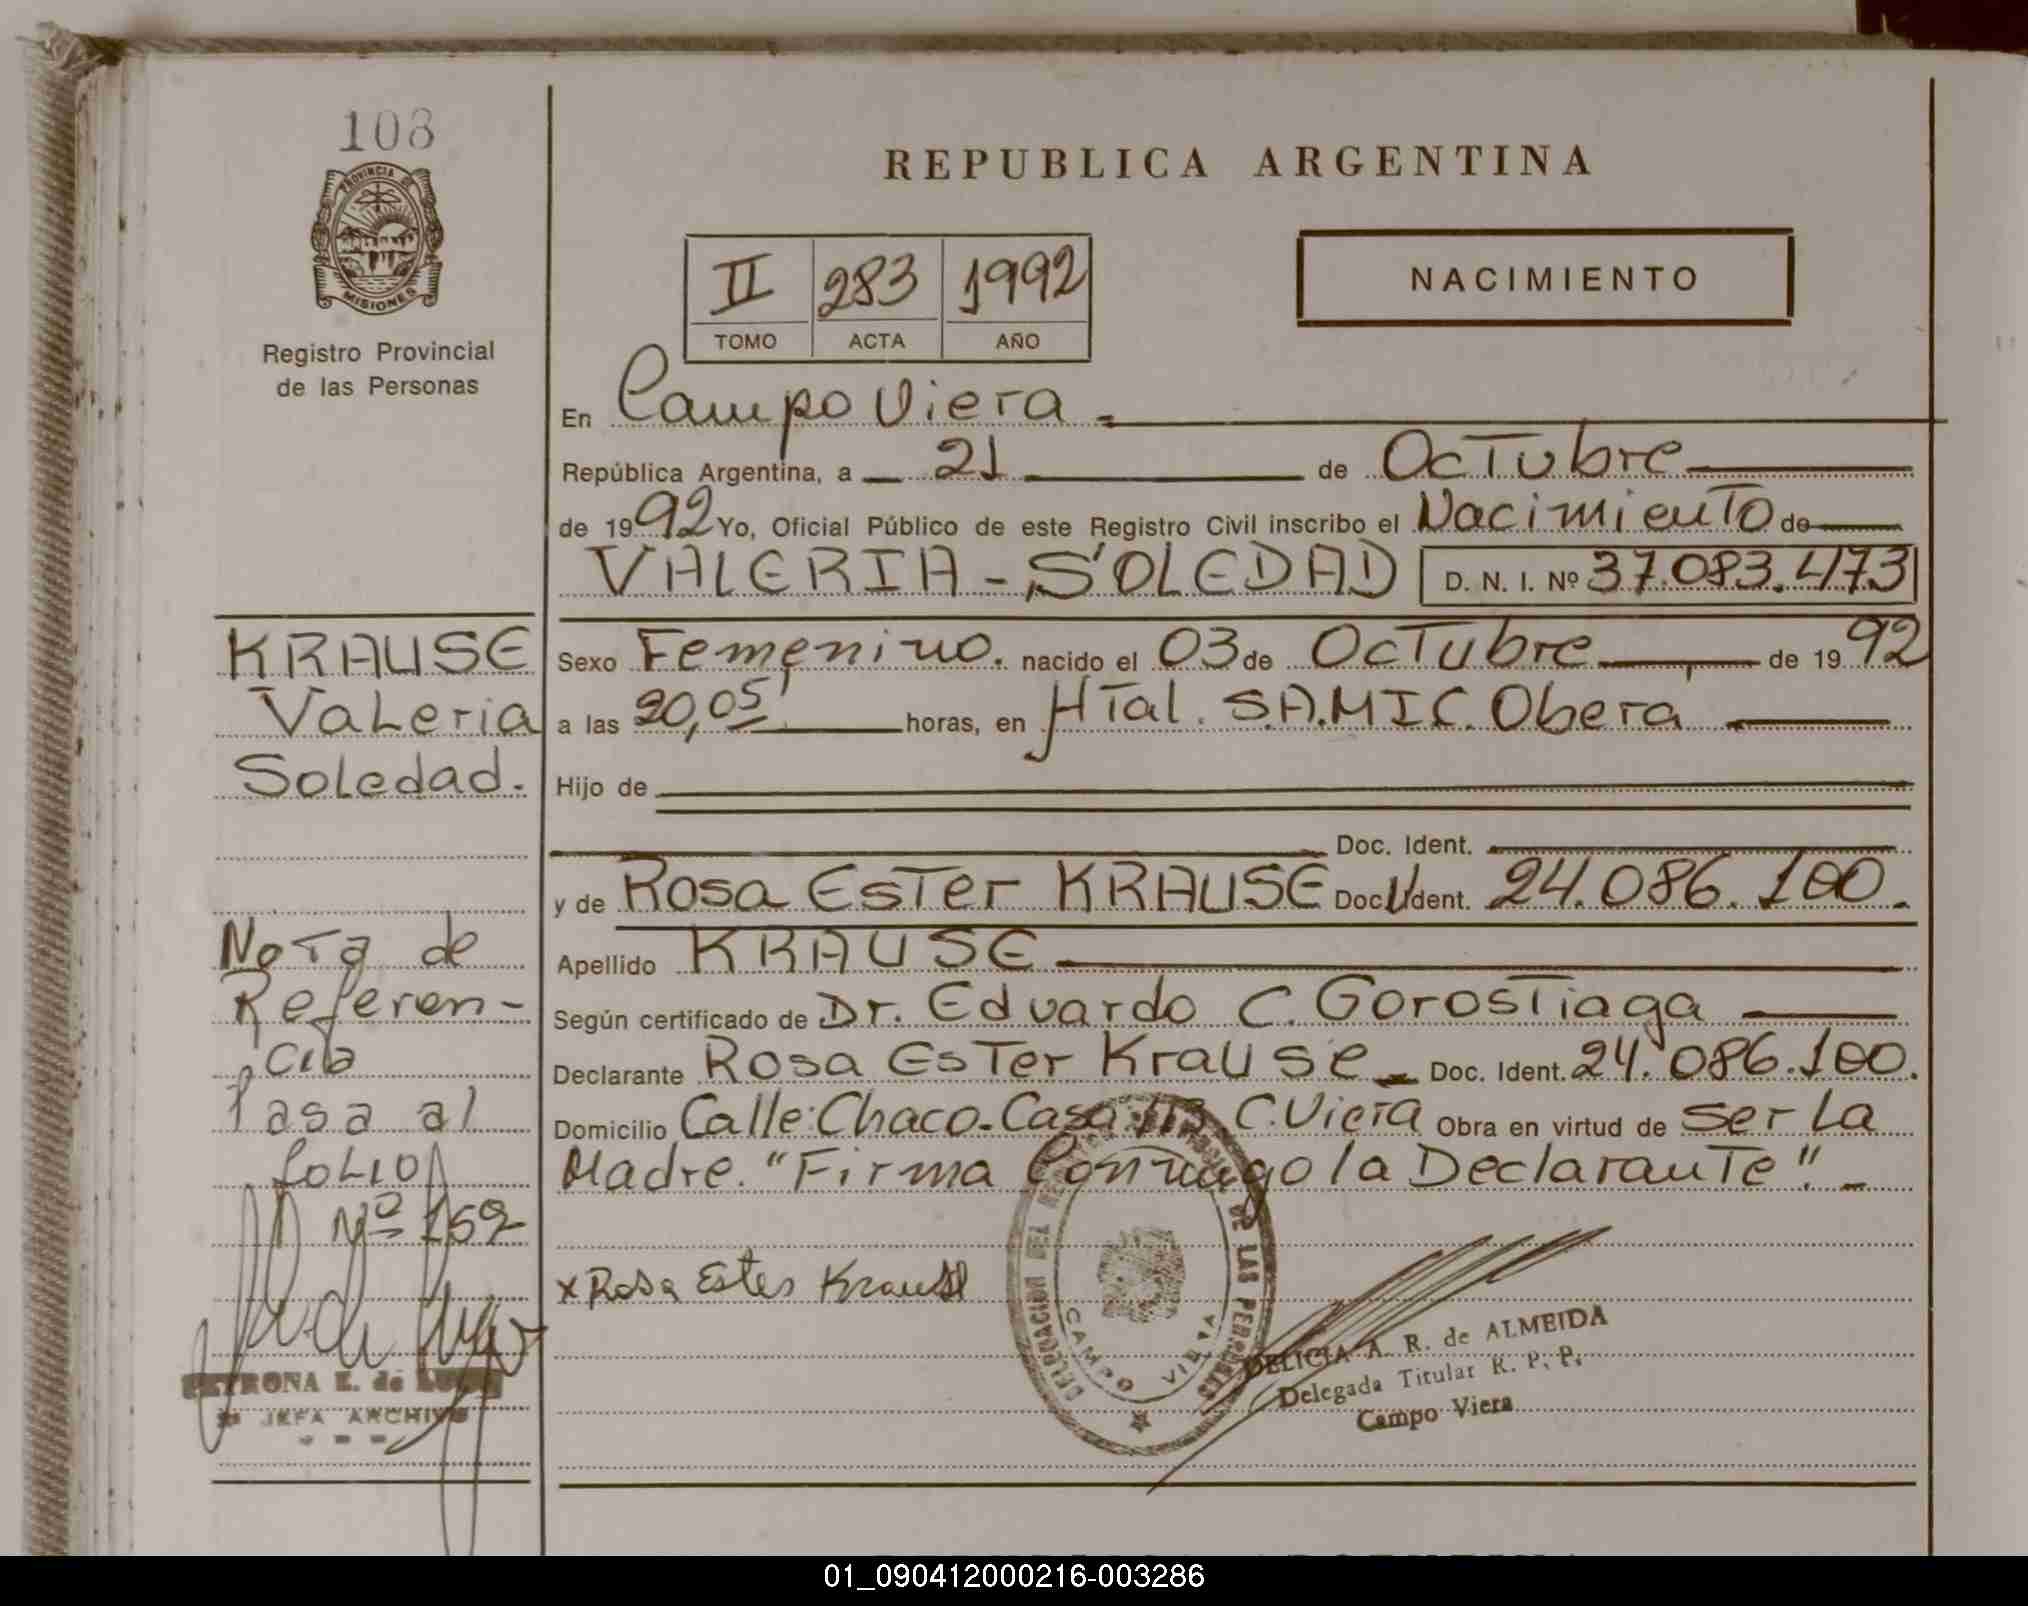 108
PROVINCIA DE
MISIONES
Registro Provincial
de las Personas
REPUBLICA ARGENTINA
II 283 1992
TOMO ACTA AÑO
NACIMIENTO
En Campo Viera
República Argentina, a 21 de Octubre
de 1992 Yo, Oficial Público de este Registro Civil inscribo el Nacimiento de
VALERIA - SOLEDAD D. N. I. Nº 37.083.473
KRAUSE
Valeria
Soledad.
Sexo Femenino. nacido el 03 de Octubre de 1992
a las 20,05 horas, en HTal. S.A.M.I.C. Obera
Hijo de
Doc. Ident.
y de Rosa Ester KRAUSE Doc. Ident. 24.086.100.
Apellido KRAUSE
Según certificado de Dr. Eduardo C. Gorostiaga
Declarante Rosa Ester Krause Doc. Ident. 24.086.100.
Domicilio Calle: Chaco. Casa 113. C. Viera Obra en virtud de ser La
Madre. "Firma Conmigo la Declarante".
Nota de
Referen-
cia
Pasa al
Folio
Nº 159
x Rosa Ester Krause
DELEGACION DEL DE LAS PERSONAS
CAMPO VIERA
DELICIA A. R. de ALMEIDA
Delegada Titular R. P. P.
Campo Viera
JEFA ARCHIVO
01_090412000216-003286